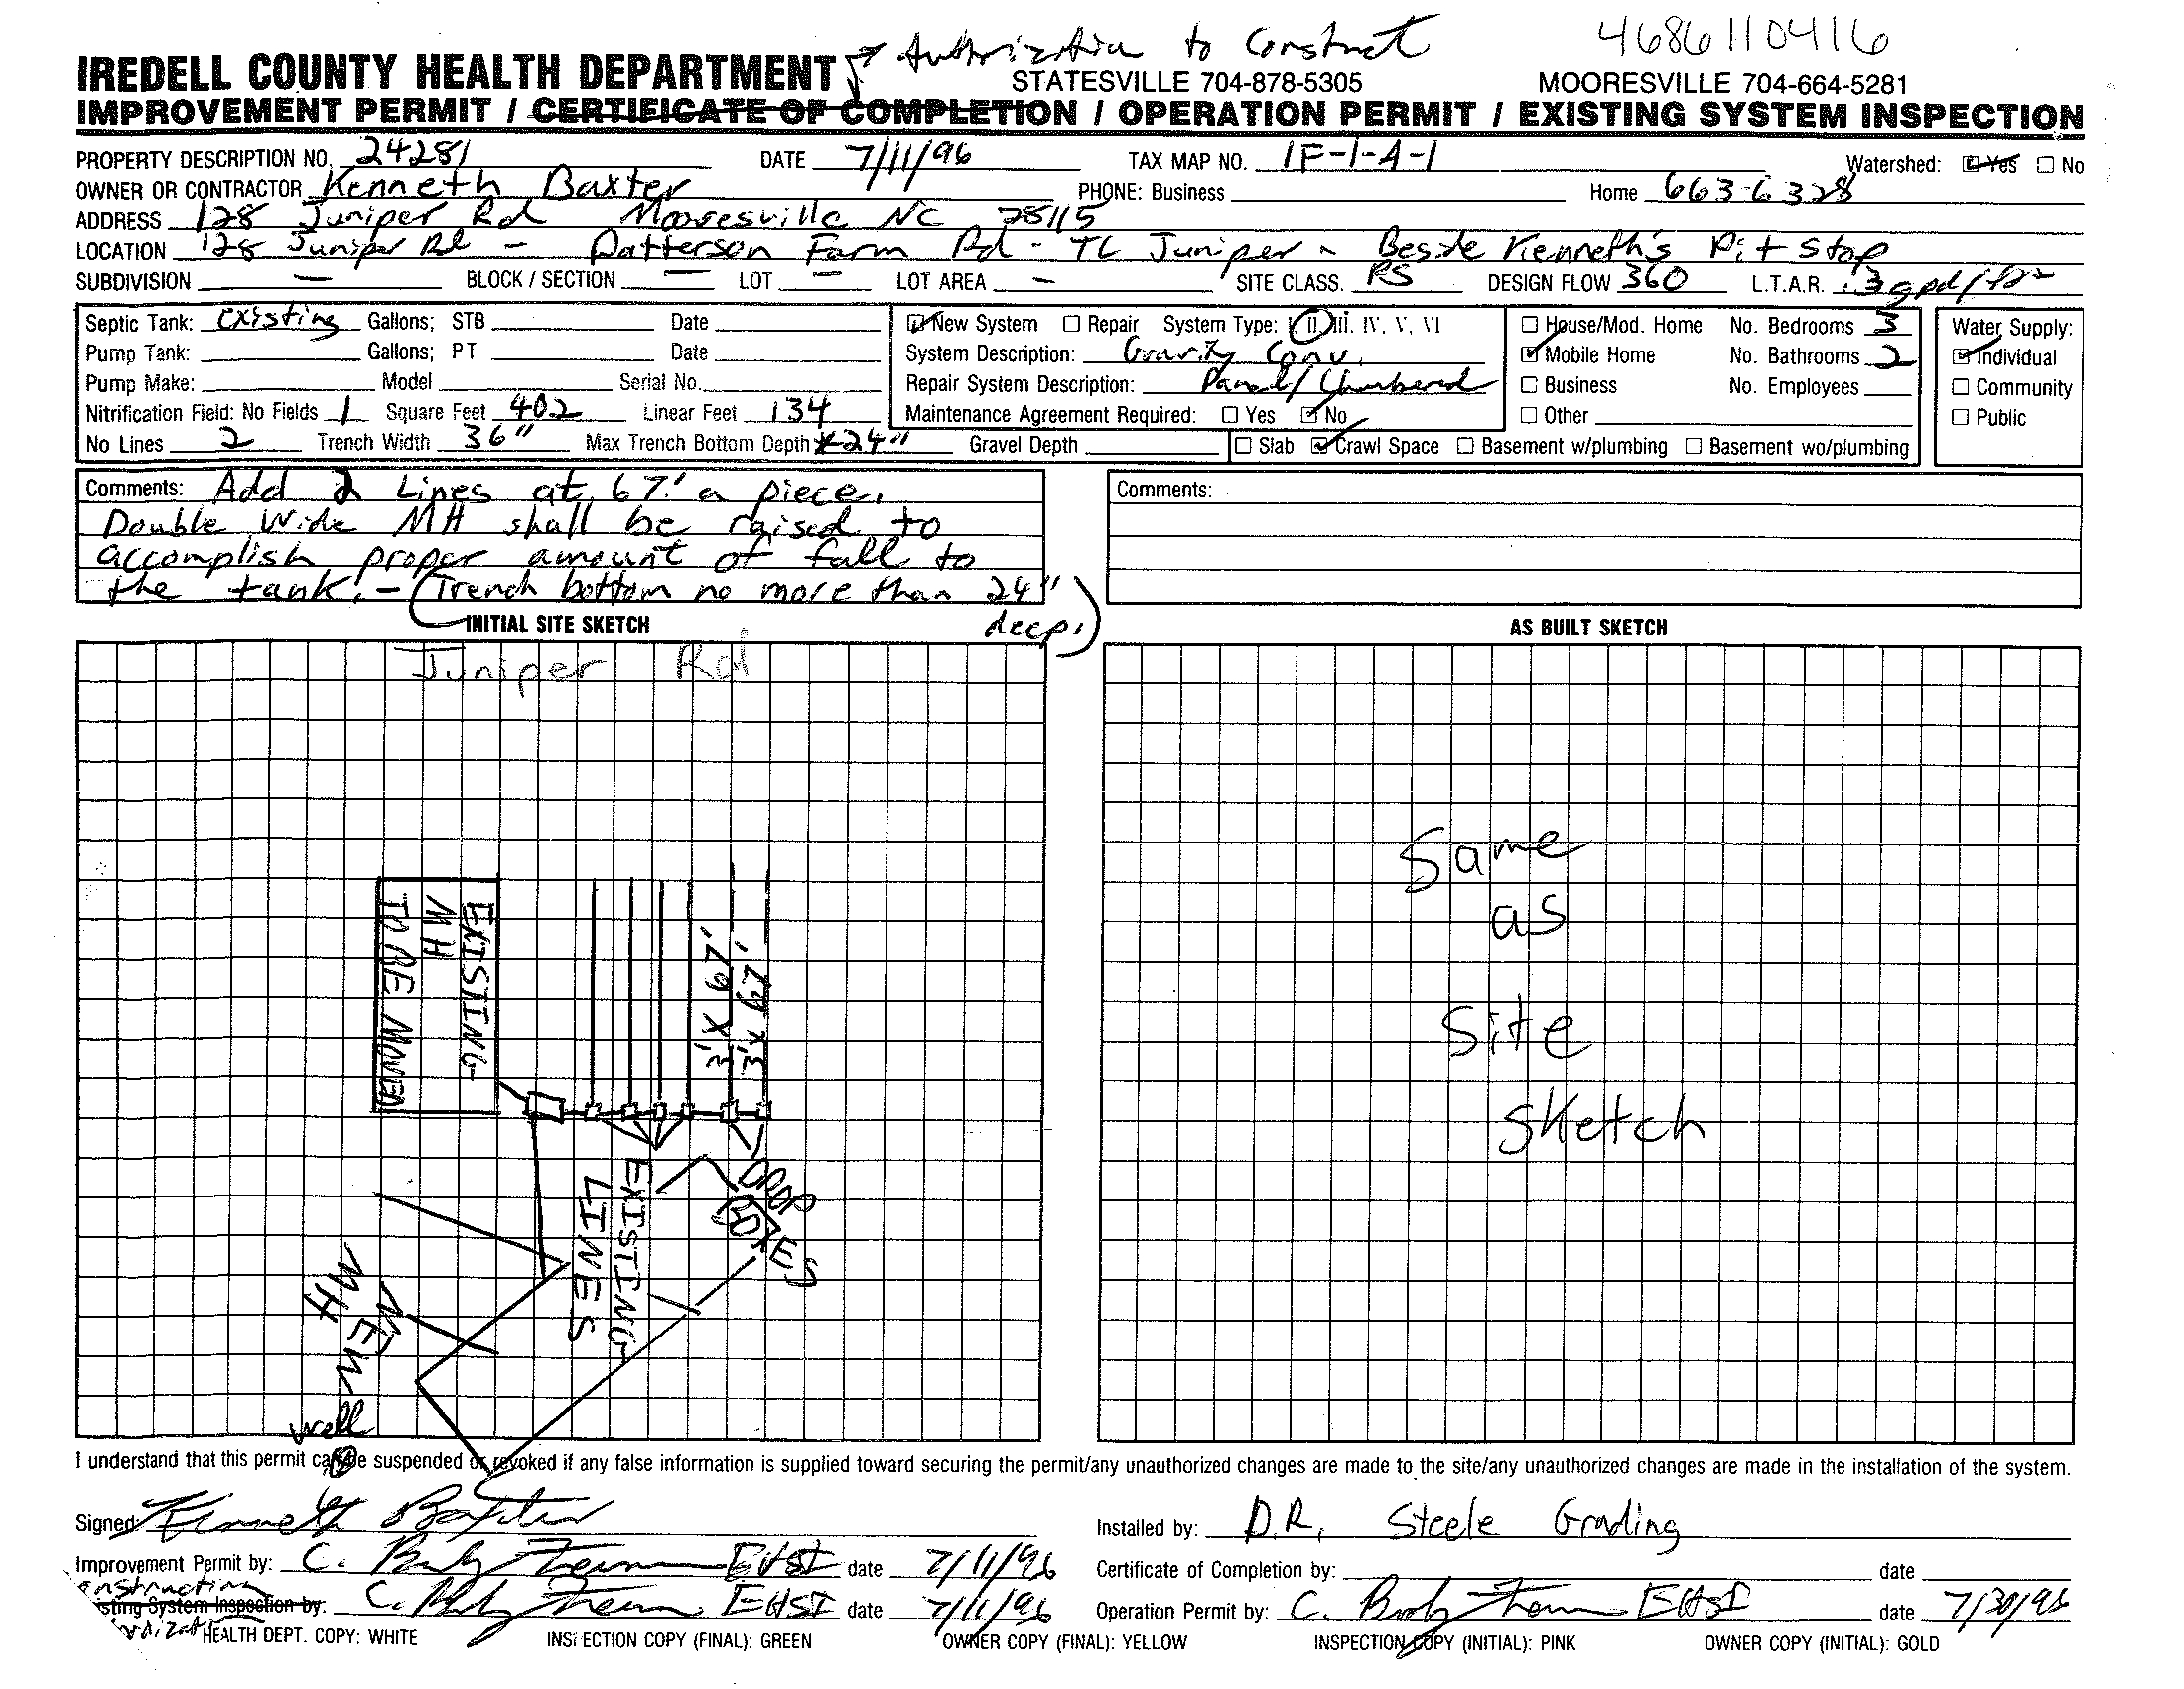 Authorization to Construct 4686110416
IREDELL COUNTY HEALTH DEPARTMENT STATESVILLE 704-878-5305 MOORESVILLE 704-664-5281
IMPROVEMENT PERMIT / CERTIFICATE OF COMPLETION / OPERATION PERMIT / EXISTING SYSTEM INSPECTION
PROPERTY DESCRIPTION NO. 24281 DATE 7/11/96 TAX MAP NO. 1F-1-A-1 Watershed: ☑ Yes ☐ No
OWNER OR CONTRACTOR Kenneth Baxter PHONE: Business Home 663-6328
ADDRESS 128 Juniper Rd Mooresville NC 28115
LOCATION 128 Juniper Rd - Patterson Farm Rd - TL Juniper - Beside Kenneth's Pit Stop
SUBDIVISION — BLOCK / SECTION — LOT — LOT AREA — SITE CLASS. PS DESIGN FLOW 360 L.T.A.R. .3 gpd/ft2
Septic Tank: existing Gallons; STB Date
Pump Tank: Gallons; PT Date
Pump Make: Model Serial No.
Nitrification Field: No Fields 1 Square Feet 402 Linear Feet 134
No Lines 2 Trench Width 36" Max Trench Bottom Depth 24" Gravel Depth
☑ New System ☐ Repair System Type: I, II, III, IV, V, VI
System Description: Gravity Conv.
Repair System Description: Panel/Chambered
Maintenance Agreement Required: ☐ Yes ☑ No
☐ House/Mod. Home No. Bedrooms 3
☑ Mobile Home No. Bathrooms 2
☐ Business No. Employees
☐ Other
☐ Slab ☑ Crawl Space ☐ Basement w/plumbing ☐ Basement wo/plumbing
Water Supply:
☑ Individual
☐ Community
☐ Public
Comments: Add 2 Lines at 67' a piece.
Double Wide MH shall be raised to
accomplish proper amount of fall to
the tank. - Trench bottom no more than 24"
deep.
Comments:
INITIAL SITE SKETCH
Juniper Rd
EXISTING
MH
TO BE MOVED
67' X 3'
67' X 3'
EXISTING
LINES
DROP
BOXES
NEW
MH
well
AS BUILT SKETCH
Same
as
Site
Sketch
I understand that this permit can be suspended or revoked if any false information is supplied toward securing the permit/any unauthorized changes are made to the site/any unauthorized changes are made in the installation of the system.
Signed: Kenneth Baxter
Installed by: D.R. Steele Grading
Improvement Permit by: C. EHSI date 7/11/96
Certificate of Completion by: date
Construction
Existing System Inspection by: C. EHSI date 7/11/96
Operation Permit by: C. EHSI date 7/30/96
HEALTH DEPT. COPY: WHITE INSPECTION COPY (FINAL): GREEN OWNER COPY (FINAL): YELLOW INSPECTION COPY (INITIAL): PINK OWNER COPY (INITIAL): GOLD